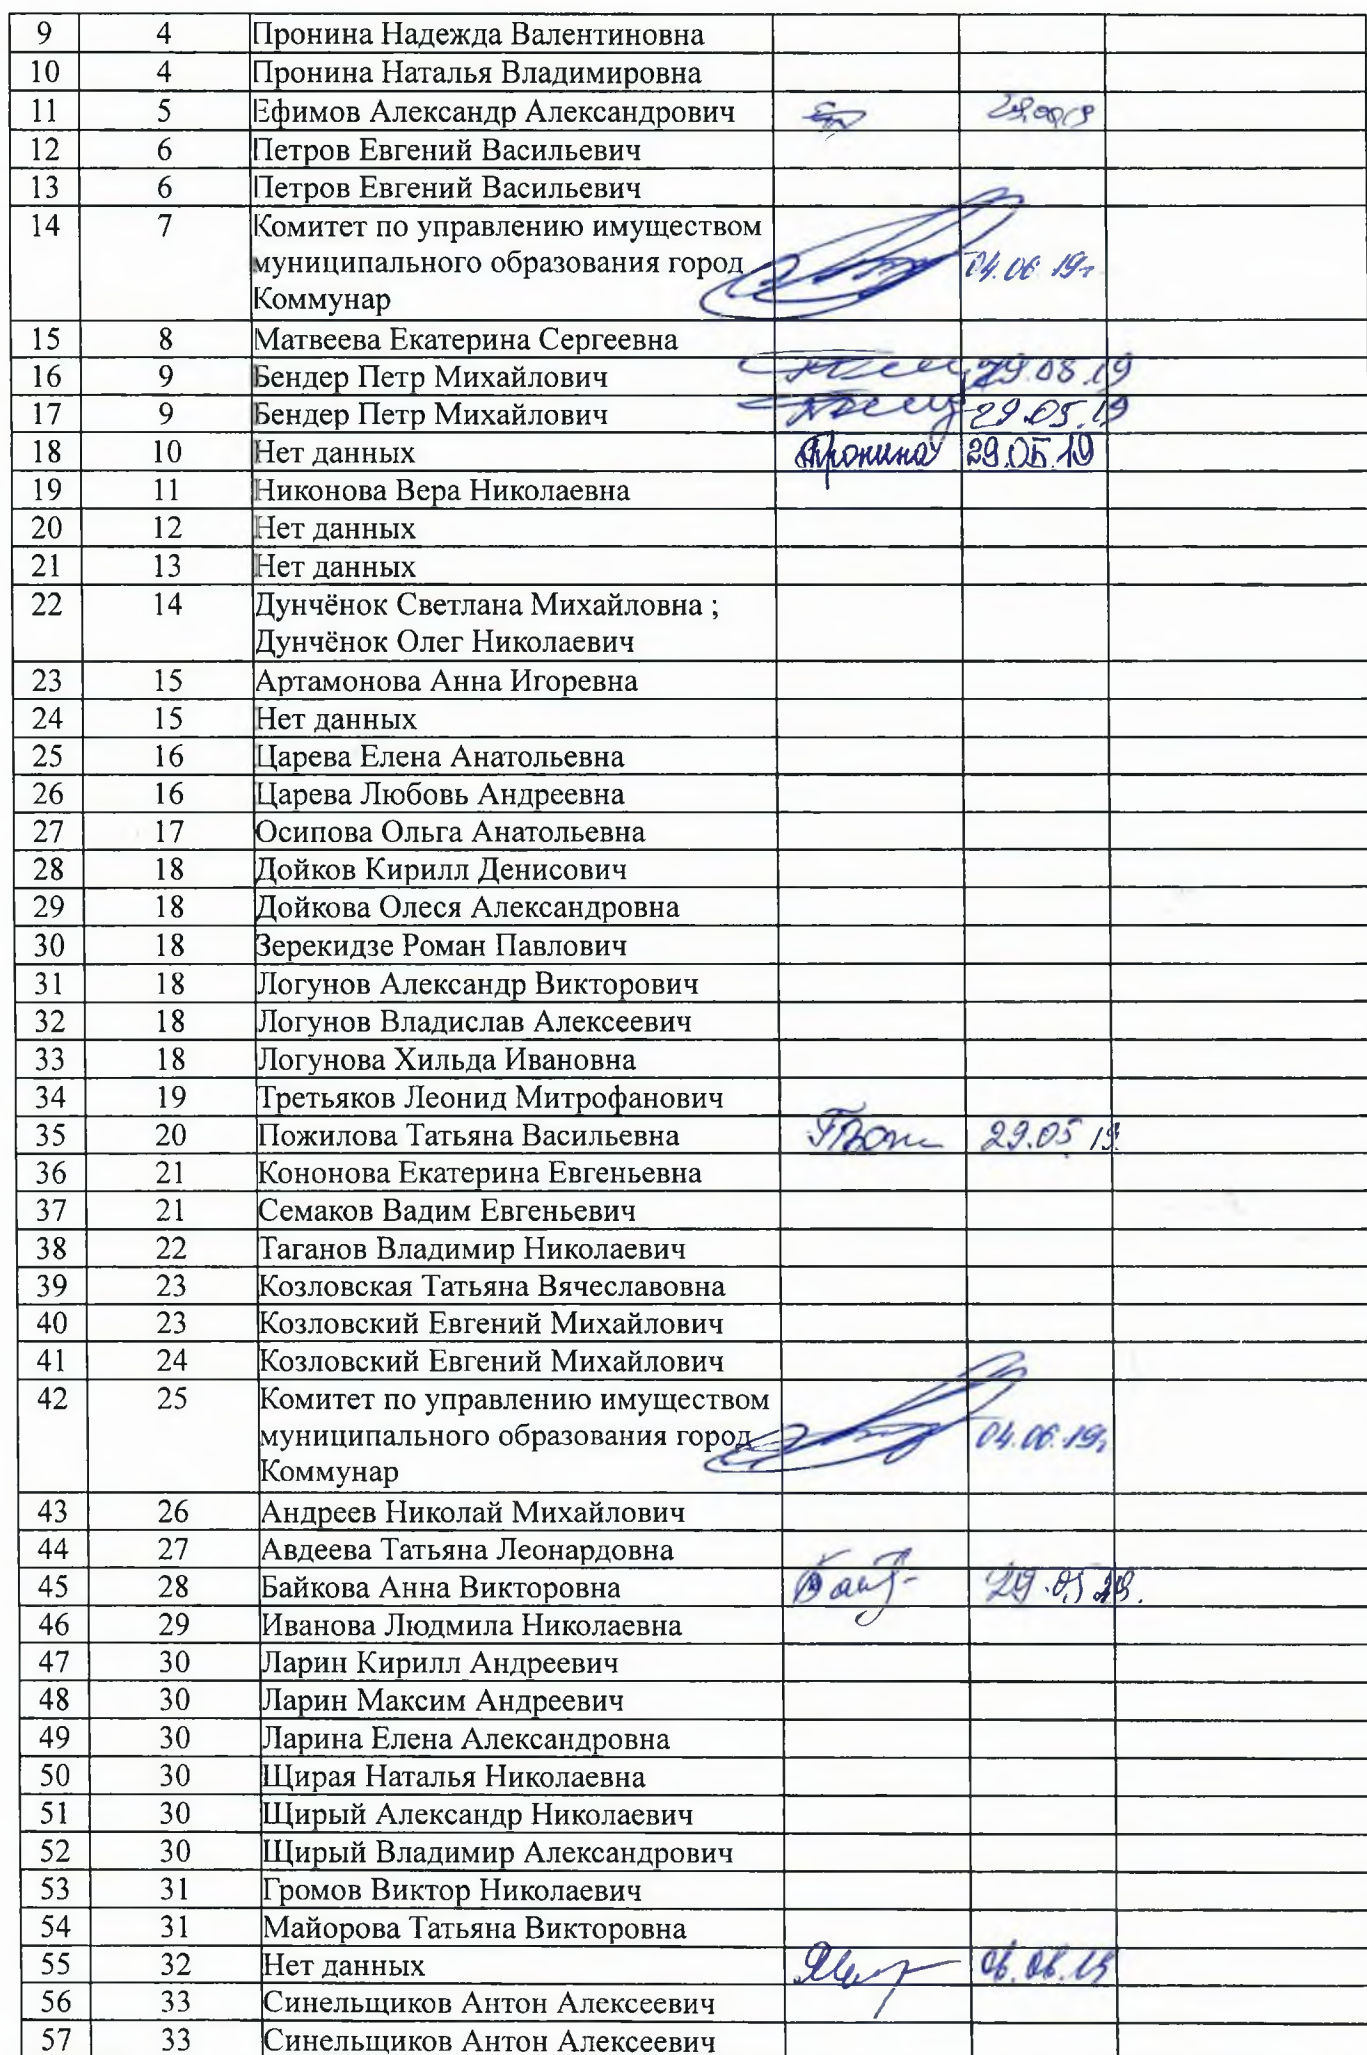 9 4 Пронина Надежда Валентиновна
10 4 Пронина Наталья Владимировна
11 5 Ефимов Александр Александрович
12 6 Петров Евгений Васильевич
13 6 Петров Евгений Васильевич
14 7 Комитет по управлению имуществом
муниципального образования город
Коммунар 04.06.19г
15 8 Матвеева Екатерина Сергеевна
16 9 Бендер Петр Михайлович
17 9 Бендер Петр Михайлович 29.05.19
18 10 Нет данных Пронина 29.05.19
19 11 Никонова Вера Николаевна
20 12 Нет данных
21 13 Нет данных
22 14 Дунчёнок Светлана Михайловна ;
Дунчёнок Олег Николаевич
23 15 Артамонова Анна Игоревна
24 15 Нет данных
25 16 Царева Елена Анатольевна
26 16 Царева Любовь Андреевна
27 17 Осипова Ольга Анатольевна
28 18 Дойков Кирилл Денисович
29 18 Дойкова Олеся Александровна
30 18 Зерекидзе Роман Павлович
31 18 Логунов Александр Викторович
32 18 Логунов Владислав Алексеевич
33 18 Логунова Хильда Ивановна
34 19 Третьяков Леонид Митрофанович
35 20 Пожилова Татьяна Васильевна 29.05 19.
36 21 Кононова Екатерина Евгеньевна
37 21 Семаков Вадим Евгеньевич
38 22 Таганов Владимир Николаевич
39 23 Козловская Татьяна Вячеславовна
40 23 Козловский Евгений Михайлович
41 24 Козловский Евгений Михайлович
42 25 Комитет по управлению имуществом
муниципального образования город
Коммунар 04.06.19г
43 26 Андреев Николай Михайлович
44 27 Авдеева Татьяна Леонардовна
45 28 Байкова Анна Викторовна
46 29 Иванова Людмила Николаевна
47 30 Ларин Кирилл Андреевич
48 30 Ларин Максим Андреевич
49 30 Ларина Елена Александровна
50 30 Щирая Наталья Николаевна
51 30 Щирый Александр Николаевич
52 30 Щирый Владимир Александрович
53 31 Громов Виктор Николаевич
54 31 Майорова Татьяна Викторовна
55 32 Нет данных
56 33 Синельщиков Антон Алексеевич
57 33 Синельщиков Антон Алексеевич